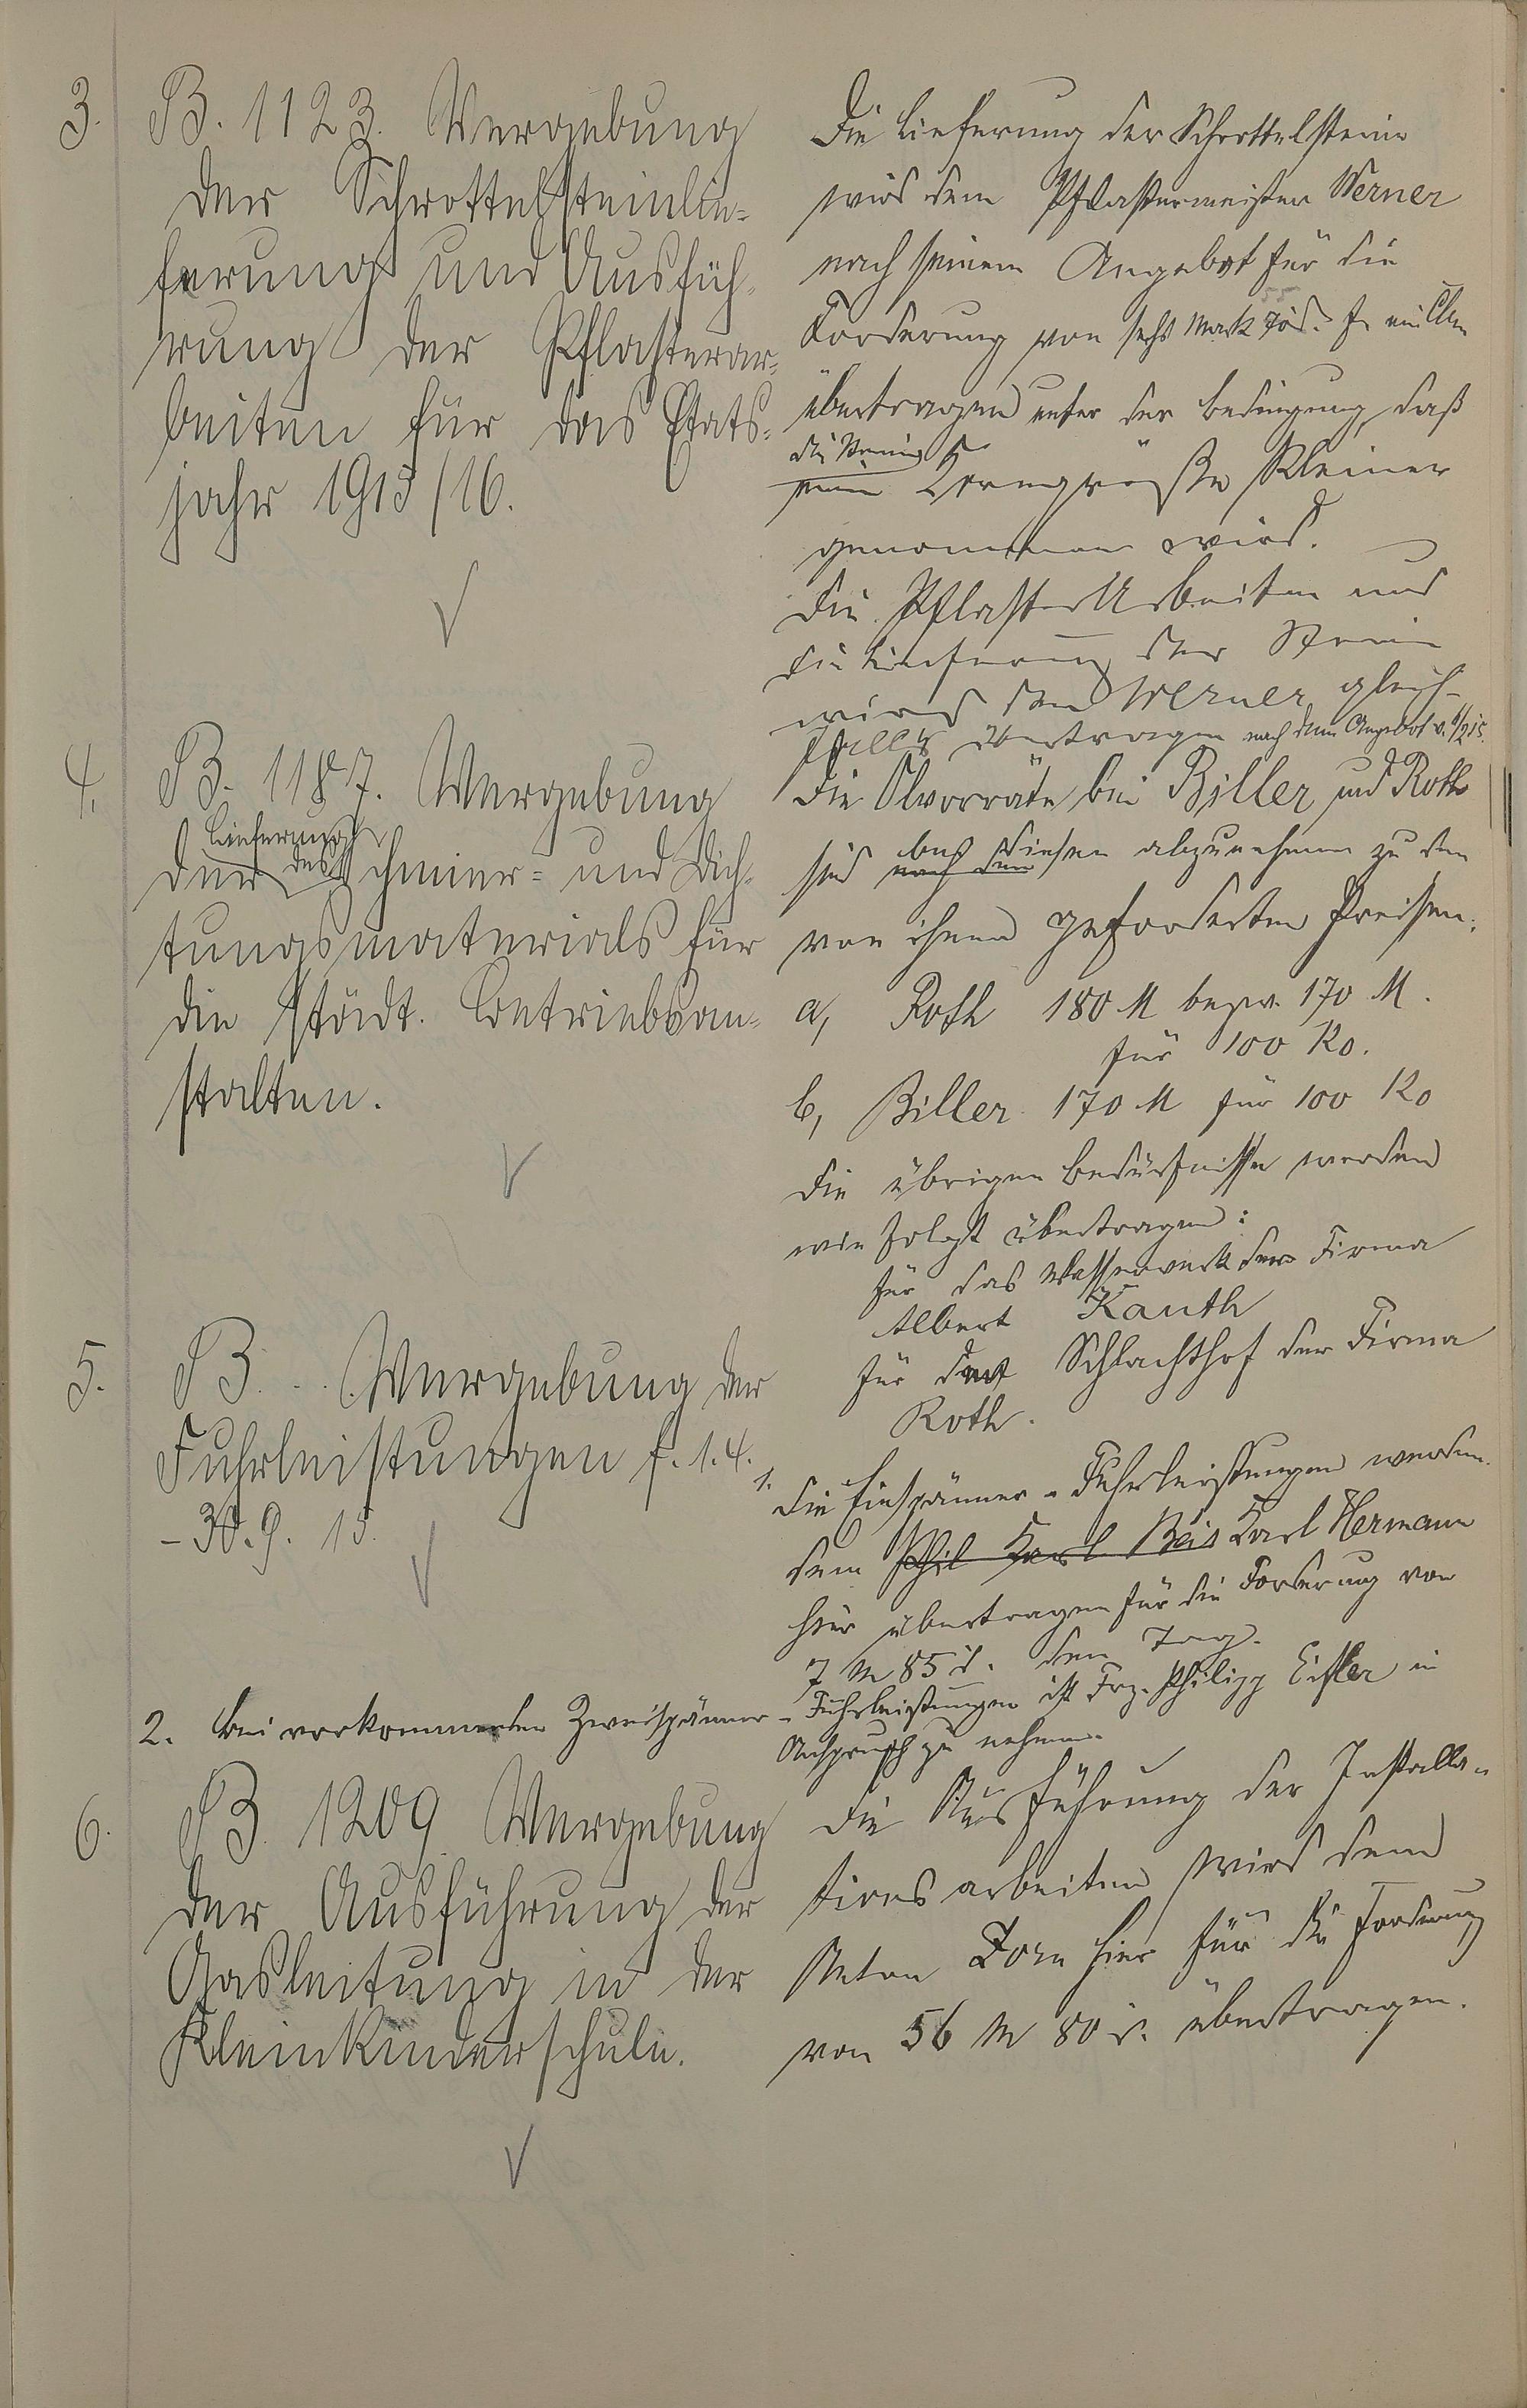 3.
B. 1123. Vergebung
der Schrottelsteinlie-
ferung und Ausfüh-
rung der Pflasterar-
beiten für das Etats-
jahr 1915/16.
Die Lieferung der Schrottelsteine
wird dem Pflastermeister Werner
nach seinem Angebot für die
Forderung von sechs Mark
übertragen unter der Bedingung, daß
die Steine
eine Korngröße kleiner
genommen wird.
Die Pflaster Arbeiten und
die Lieferung der Steine
wird dem Werner gleich-
falls übertragen nach dem Angebot v.
4.
B. 1187. Vergebung
Lieferung
der des Schmier- und Dich-
tungsmaterials für
die städt. Betriebsan-
stalten.
Die Ölvorräte bei Biller und Roth
sind von diesen abzunehmen zu den
von ihnen geforderten Preisen:
a, Roth 180 M bezw. 170 M.
für 100 Ko.
b, Biller 170 M für 100 Ko
Die übrigen Bedürfnisse werden
wie folgt übertragen:
für das Wasserwerk der Firma
Albert Kauth
für den Schlachthof der Firma
Roth.
5.
B. . . Vergebung der
Fuhrleistungen f. 1.4.
- 30.9. 15.
1. Die Einspänner-Fuhrleistungen werden
dem Phil Karl Beis Karl Hermann
hier übertragen für die Forderung von
7 M 85 d. den Tag.
2. Bei vorkommenden Zweispänner-Fuhrleistungen ist Frz. Philipp Eifler in
Anspruch zu nehmen.
6.
B 1209. Vergebung
der Ausführung der
Gasleitung in der
Kleinkinderschule.
Die Ausführung der Installa-
tionsarbeiten wird dem
Anton Dorn hier für die Forderung
von 56 M 80 d. übertragen.